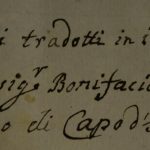 i tradotti in i
sig.r Bonifacio
o di Capod'i